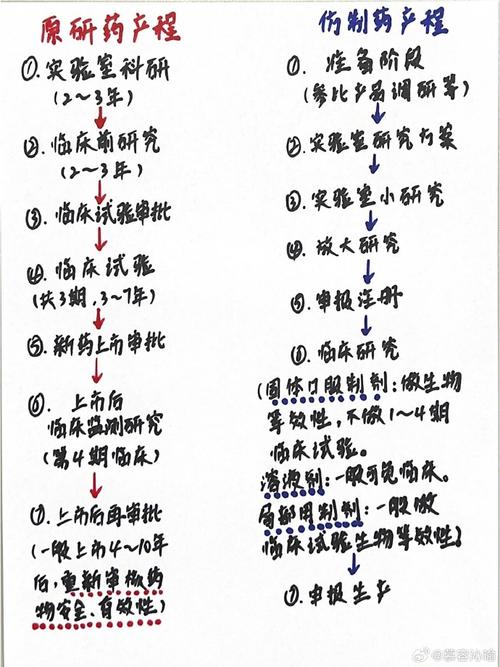 原研药产程
①. 实验室科研
(2～3年)
②. 临床前研究
(2～3年)
③. 临床试验审批
④. 临床试验
(共3期, 3~7年)
⑤. 新药上市审批
⑥. 上市后
临床监测研究
(第4期临床)
⑦. 上市后再审批
(一般上市4～10年
后, 重新审核药
物安全、有效性)
仿制药产程
①. 准备阶段
(参比产品调研等)
②. 实验室研究方案
③. 实验室小研究
④. 放大研究
⑤. 申报注册
⑥. 临床研究
(固体口服制剂: 做生物
等效性, 不做1～4期
临床试验。
溶液剂: 一般可免临床。
局部用制剂: 一般做
临床试验生物等效性)
⑦. 申报生产